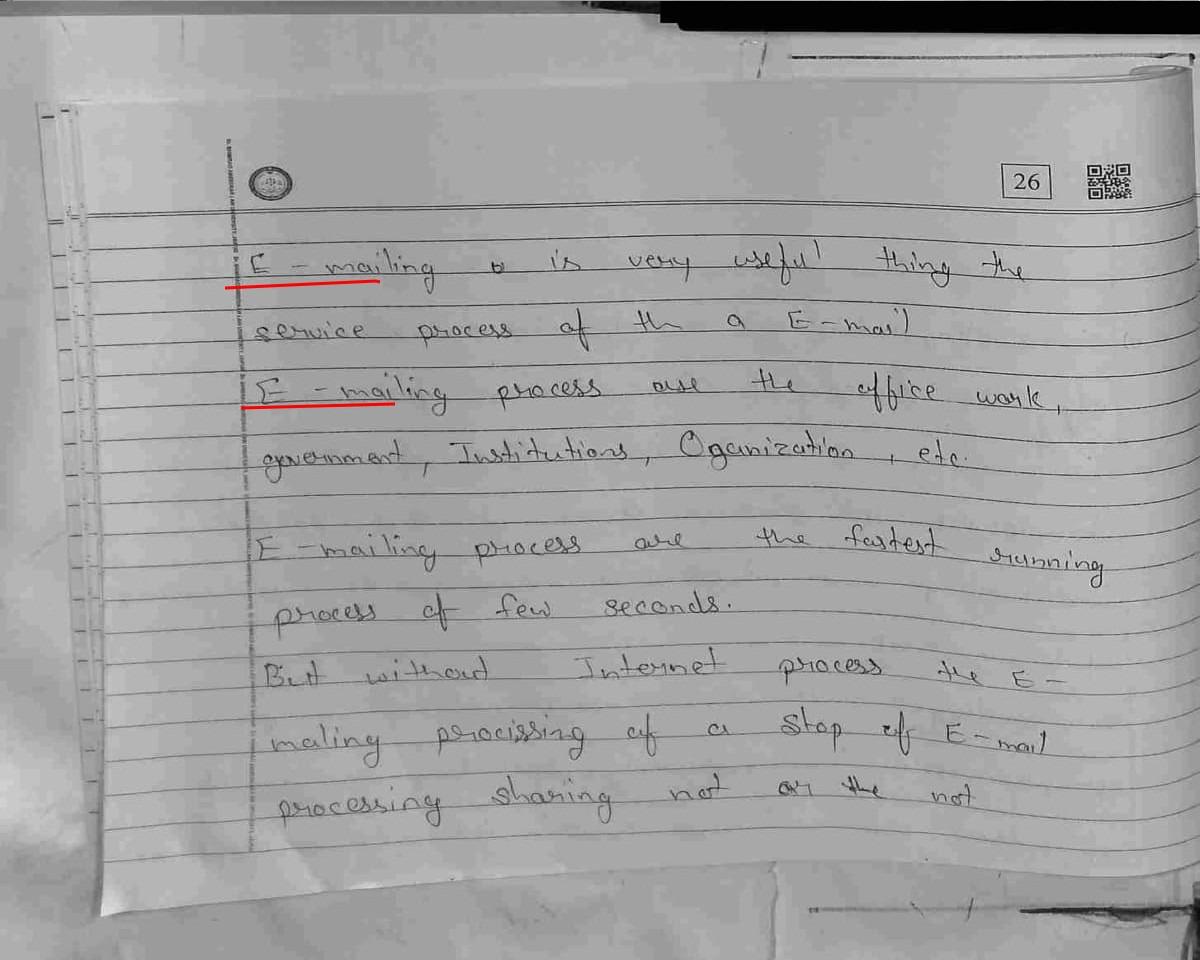 26
E - mailing is very useful thing the
service process of th a E-mail
E - mailing process are the office work,
government, Institutions, Oganization, etc.
E-mailing process are the fastest running
process of few seconds.
But without Internet process the E-
maling procissing of a stop of E-mail
processing sharing not or the not